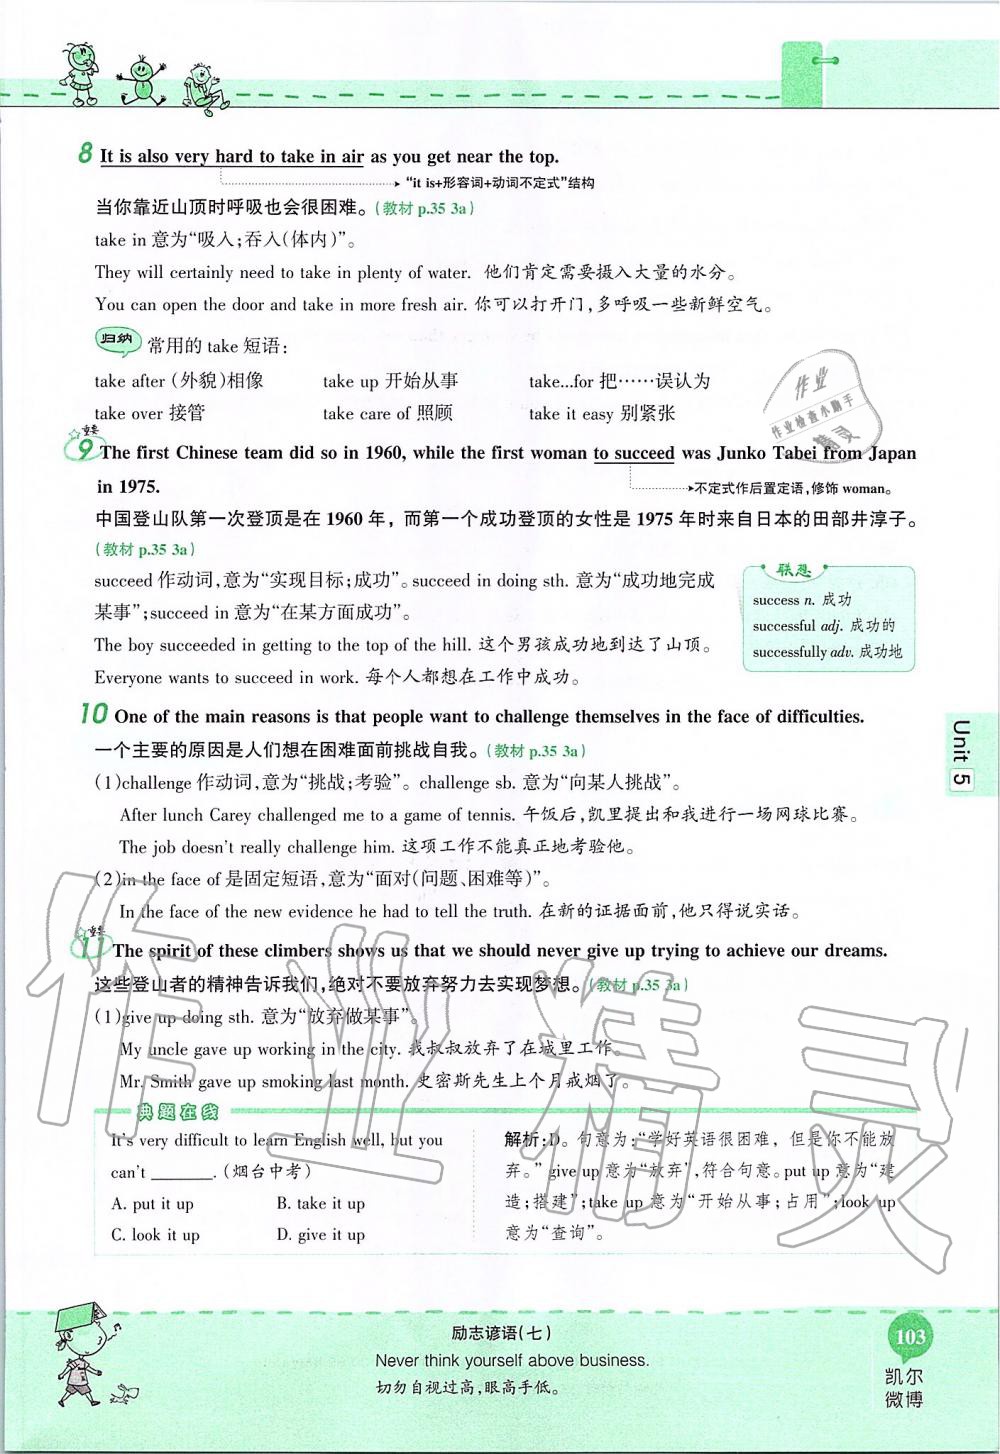 8 It is also very hard to take in air as you get near the top.
“it is+形容词+动词不定式”结构
当你靠近山顶时呼吸也会很困难。(教材 p.35 3a)
take in 意为“吸入;吞入(体内)”。
They will certainly need to take in plenty of water. 他们肯定需要摄入大量的水分。
You can open the door and take in more fresh air. 你可以打开门,多呼吸一些新鲜空气。
归纳 常用的 take 短语:
take after (外貌)相像 take up 开始从事 take...for 把……误认为
take over 接管 take care of 照顾 take it easy 别紧张
重要
9 The first Chinese team did so in 1960, while the first woman to succeed was Junko Tabei from Japan
in 1975.
不定式作后置定语,修饰 woman。
中国登山队第一次登顶是在 1960 年，而第一个成功登顶的女性是 1975 年时来自日本的田部井淳子。
(教材 p.35 3a)
succeed 作动词,意为“实现目标;成功”。succeed in doing sth. 意为“成功地完成
某事”;succeed in 意为“在某方面成功”。
The boy succeeded in getting to the top of the hill. 这个男孩成功地到达了山顶。
Everyone wants to succeed in work. 每个人都想在工作中成功。
联想
success n. 成功
successful adj. 成功的
successfully adv. 成功地
10 One of the main reasons is that people want to challenge themselves in the face of difficulties.
一个主要的原因是人们想在困难面前挑战自我。(教材 p.35 3a)
(1)challenge 作动词,意为“挑战;考验”。challenge sb. 意为“向某人挑战”。
After lunch Carey challenged me to a game of tennis. 午饭后,凯里提出和我进行一场网球比赛。
The job doesn't really challenge him. 这项工作不能真正地考验他。
(2)in the face of 是固定短语,意为“面对(问题、困难等)”。
In the face of the new evidence he had to tell the truth. 在新的证据面前,他只得说实话。
重要
11 The spirit of these climbers shows us that we should never give up trying to achieve our dreams.
这些登山者的精神告诉我们,绝对不要放弃努力去实现梦想。(教材 p.35 3a)
(1)give up doing sth. 意为“放弃做某事”。
My uncle gave up working in the city. 我叔叔放弃了在城里工作。
Mr. Smith gave up smoking last month. 史密斯先生上个月戒烟了。
典题在线
It's very difficult to learn English well, but you
can't ________. (烟台中考)
A. put it up B. take it up
C. look it up D. give it up
解析:D。句意为:“学好英语很困难，但是你不能放
弃。”give up 意为“放弃”,符合句意。put up 意为“建
造;搭建”;take up 意为“开始从事;占用”;look up
意为“查询”。
Unit 5
作业
作业检查小助手
精灵
作业精灵
励志谚语(七)
Never think yourself above business.
切勿自视过高,眼高手低。
103
凯尔
微博